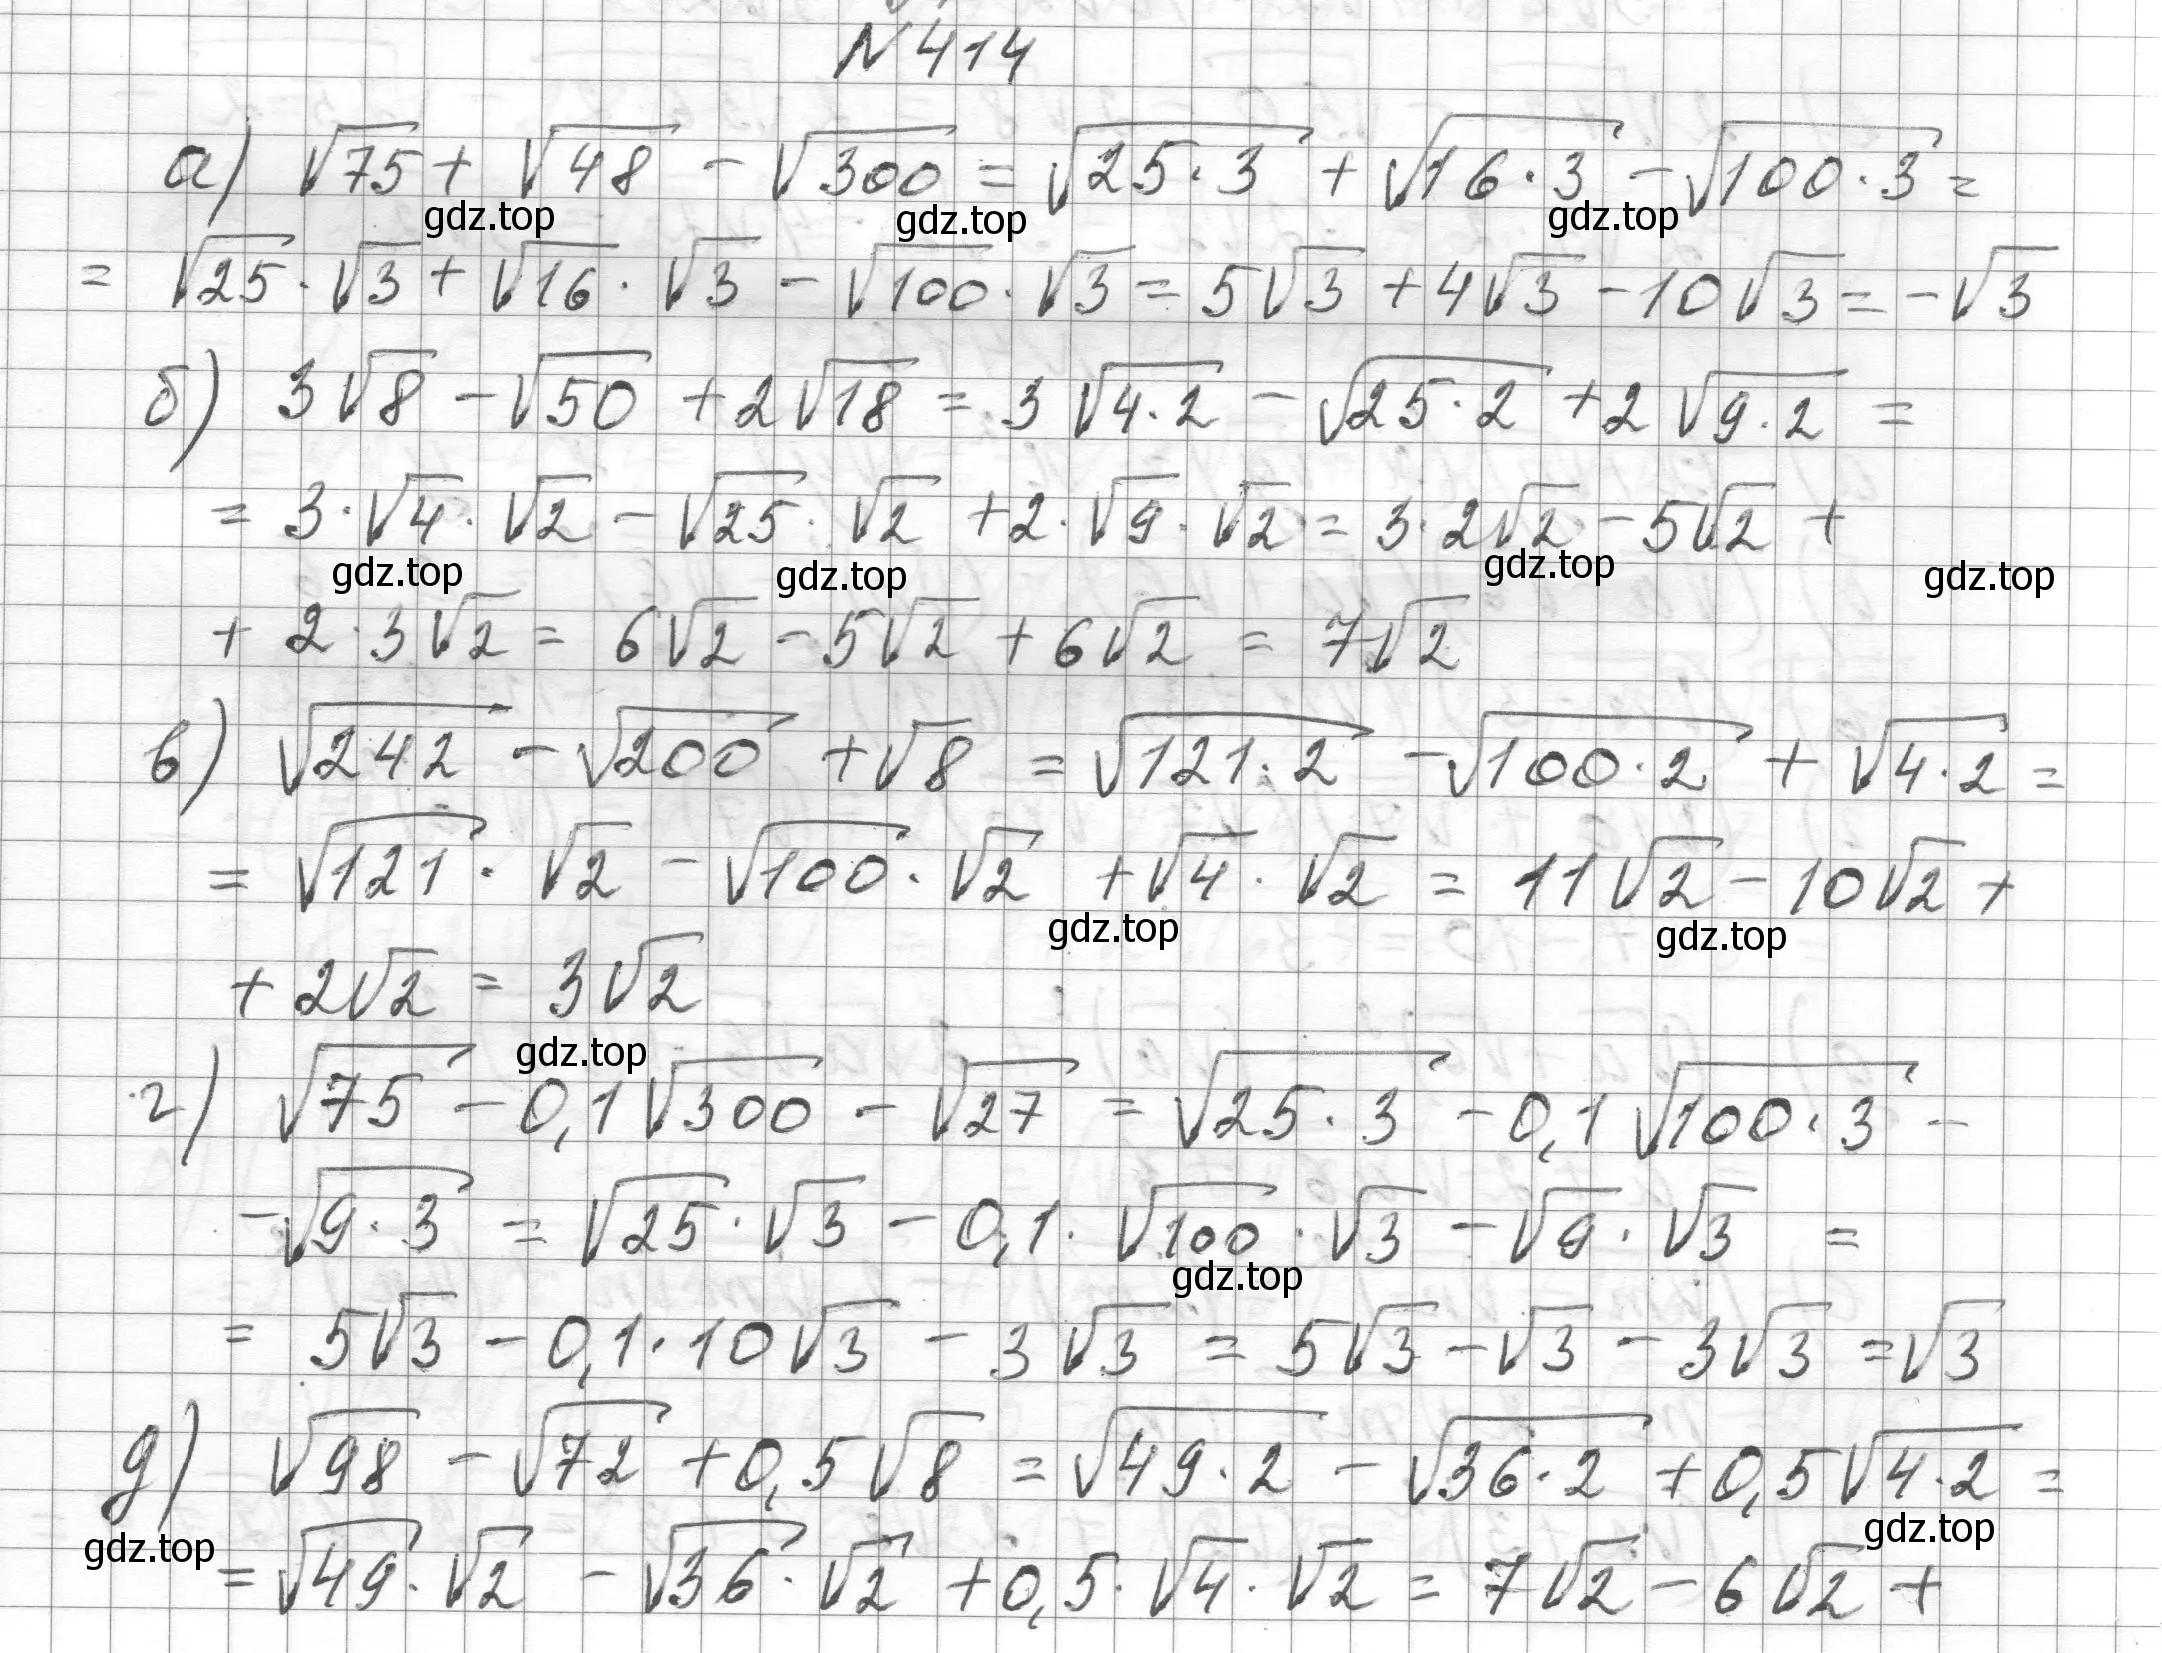 N 414
а) √75 + √48 - √300 = √25·3 + √16·3 - √100·3 =
gdz.top gdz.top gdz.top
= √25·√3 + √16·√3 - √100·√3 = 5√3 + 4√3 - 10√3 = -√3
б) 3√8 - √50 + 2√18 = 3√4·2 - √25·2 + 2√9·2 =
= 3·√4·√2 - √25·√2 + 2·√9·√2 = 3·2√2 - 5√2 +
gdz.top gdz.top gdz.top gdz.top
+ 2·3√2 = 6√2 - 5√2 + 6√2 = 7√2
в) √242 - √200 + √8 = √121·2 - √100·2 + √4·2 =
= √121·√2 - √100·√2 + √4·√2 = 11√2 - 10√2 +
gdz.top gdz.top
+ 2√2 = 3√2
gdz.top
г) √75 - 0,1√300 - √27 = √25·3 - 0,1√100·3 -
- √9·3 = √25·√3 - 0,1·√100·√3 - √9·√3 =
gdz.top
= 5√3 - 0,1·10√3 - 3√3 = 5√3 - √3 - 3√3 = √3
д) √98 - √72 + 0,5√8 = √49·2 - √36·2 + 0,5√4·2 =
gdz.top gdz.top
= √49·√2 - √36·√2 + 0,5·√4·√2 = 7√2 - 6√2 +